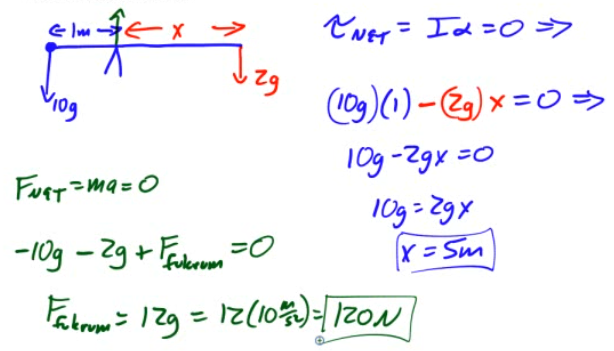 ← 1m → ← x →
10g
2g
τ_NET = Iα = 0 ⇒
(10g)(1) - (2g)x = 0 ⇒
10g - 2gx = 0
10g = 2gx
x = 5m
F_NET = ma = 0
-10g - 2g + F_fulcrum = 0
F_fulcrum = 12g = 12(10 m/s²) = 120N